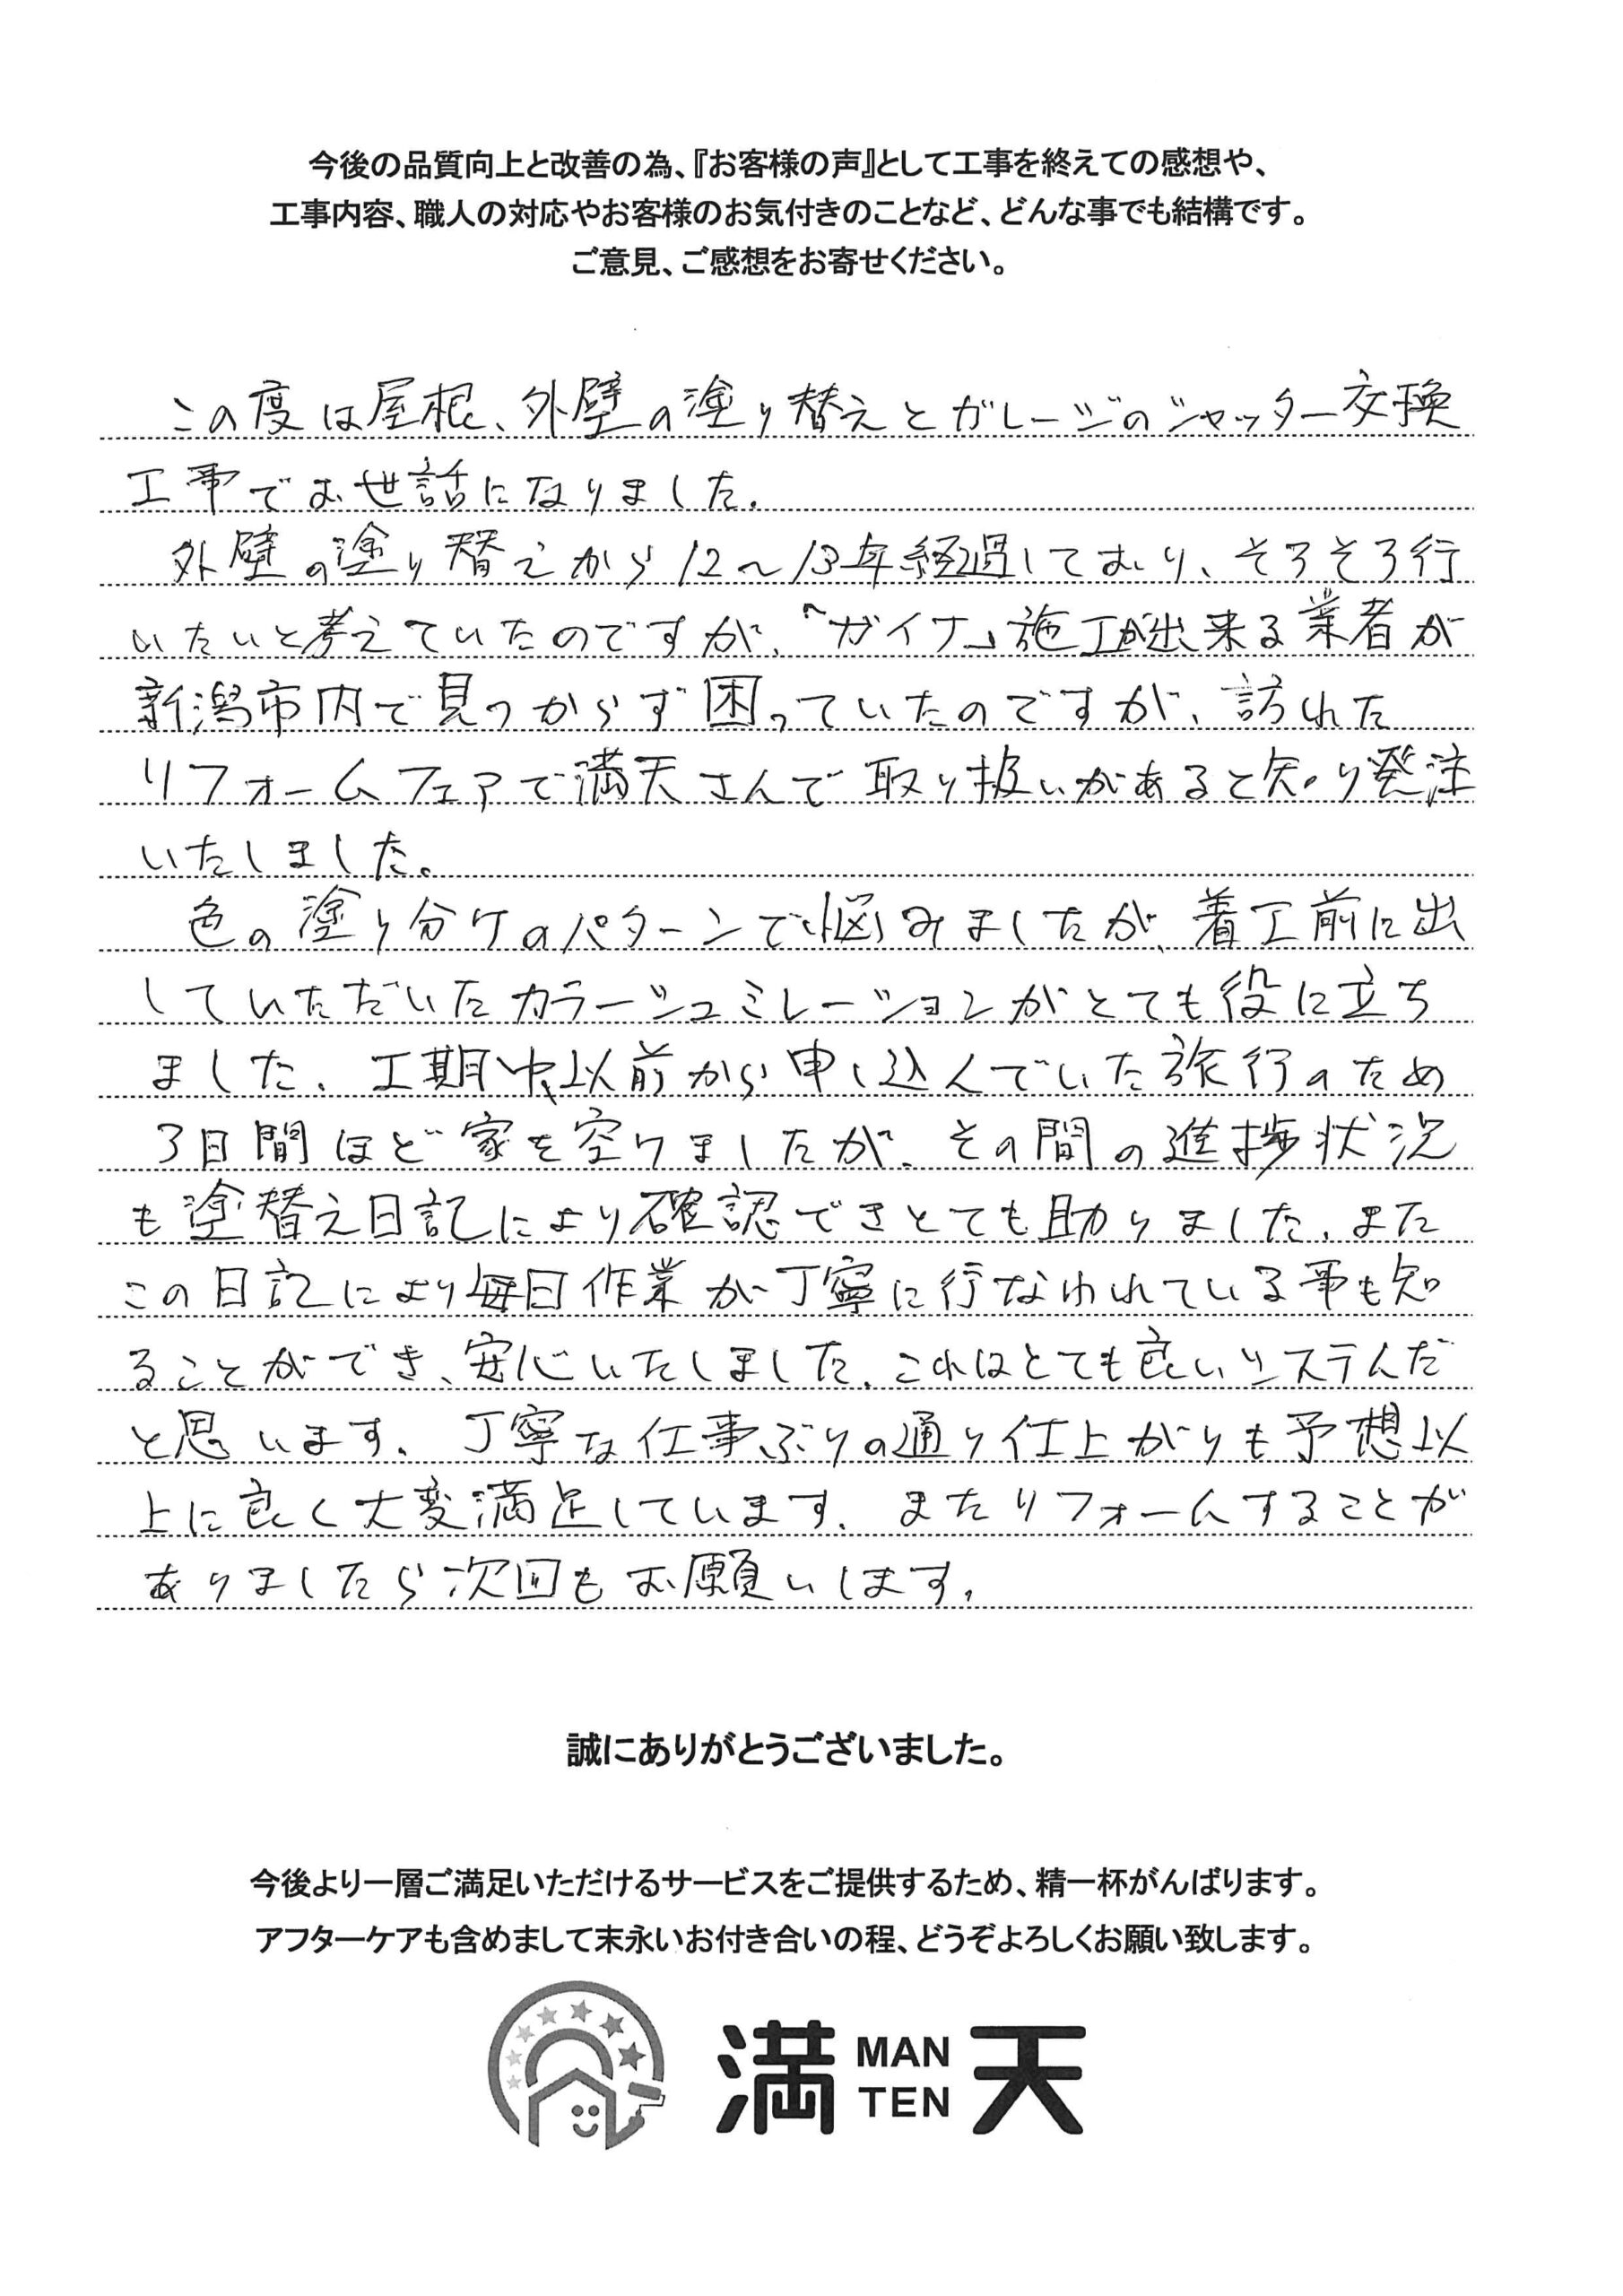 今後の品質向上と改善の為、『お客様の声』として工事を終えての感想や、
工事内容、職人の対応やお客様のお気付きのことなど、どんな事でも結構です。
ご意見、ご感想をお寄せください。
この度は屋根、外壁の塗り替えとガレージのシャッター交換
工事でお世話になりました。
外壁の塗り替えから12〜13年経過しており、そろそろ行
いたいと考えていたのですが、「ガイナ」施工が出来る業者が
新潟市内で見つからず困っていたのですが、訪れた
リフォームフェアで満天さんで取り扱いがあると知り発注
いたしました。
色の塗り分けのパターンで悩みましたが、着工前に出
していただいたカラーシュミレーションがとても役に立ち
ました。工期中、以前から申し込んでいた旅行のため
3日間ほど家を空けましたが、その間の進捗状況
も塗替え日記により確認できとても助かりました。また
この日記により毎日作業が丁寧に行なわれている事も知
ることができ、安心いたしました。これはとても良いシステムだ
と思います。丁寧な仕事ぶりの通り仕上がりも予想以
上に良く大変満足しています。またリフォームすることが
ありましたら次回もお願いします。
誠にありがとうございました。
今後より一層ご満足いただけるサービスをご提供するため、精一杯がんばります。
アフターケアも含めまして末永いお付き合いの程、どうぞよろしくお願い致します。
満天 MAN TEN